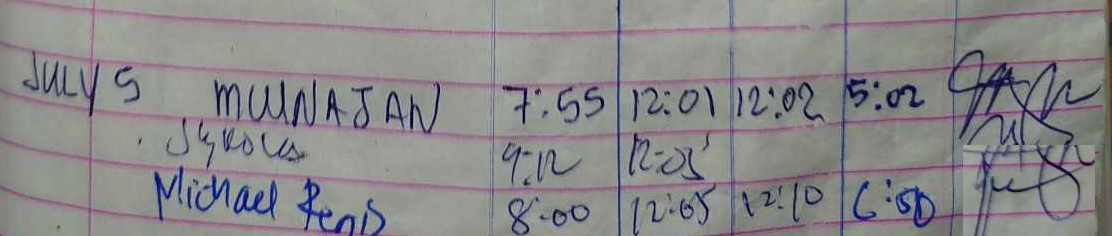 JULY 5 MUNAJAN 7:55 12:01 12:02 5:02
9:12 12:05
Michael 8:00 12:05 12:10 6:50